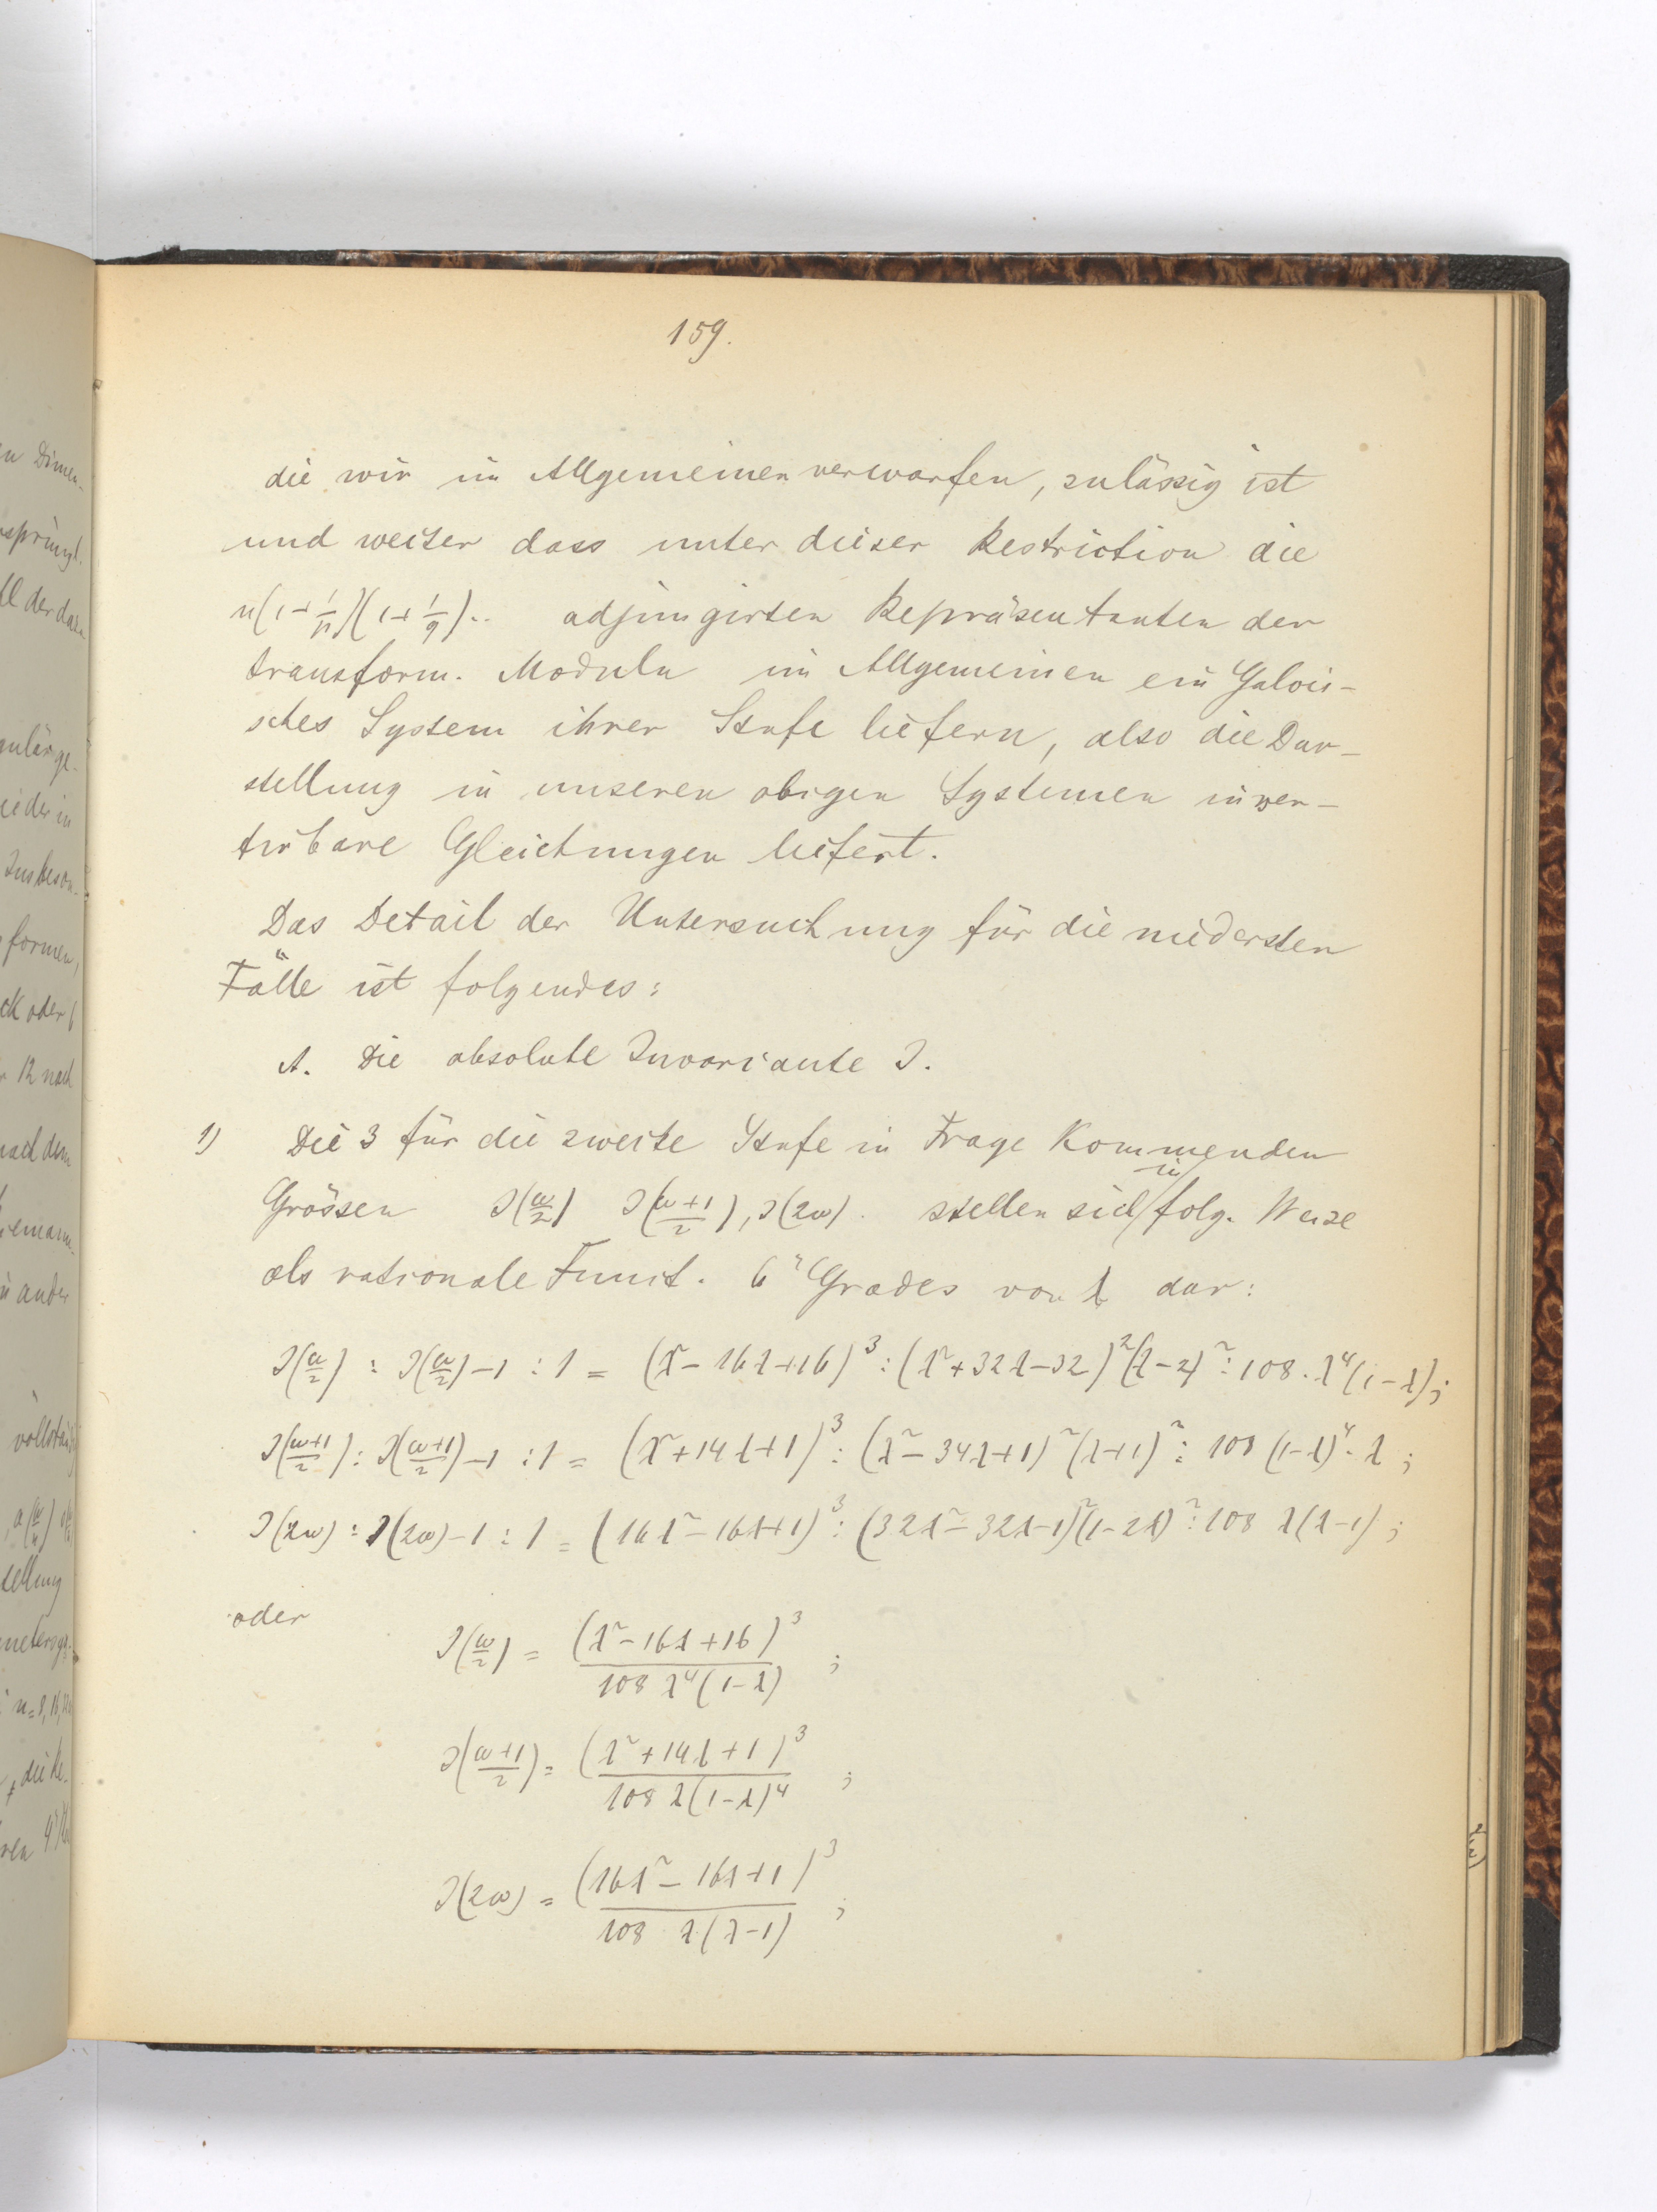 159.
die wir im Allgemeinen verwarfen, zulässig ist
und weiter dass unter dieser Restriction die
n(1+1/p)(1+1/q).. adjungirten Repräsentanten der
transform. Moduln im Allgemeinen ein Galois-
sches System ihrer Stufe liefern, also die Dar-
stellung in unseren obigen Systemen inver-
tirbare Gleichungen liefert.
Das Detail der Untersuchung für die niedersten
Fälle ist folgendes:
A. Die absolute Invariante J.
1) Die 3 für die zweite Stufe in Frage Kommenden
Grössen J(ω/2) J((ω+1)/2), J(2ω). stellen sich in folg. Weise
als rationale Funct. 6ⁿ Grades von λ dar:
J(ω/2) : J(ω/2)-1 : 1 = (λ²-16λ+16)³ : (λ²+32λ-32)²(λ-2)² : 108. λ⁴(1-λ);
J((ω+1)/2) : J((ω+1)/2)-1 : 1 = (λ²+14λ+1)³ : (λ²-34λ+1)²(λ+1)² : 108 (1-λ)⁴. λ ;
J(2ω) : J(2ω)-1 : 1 = (16λ²-16λ+1)³ : (32λ²-32λ-1)²(1-2λ)² : 108 λ(λ-1) ;
oder
J(ω/2) = (λ²-16λ+16)³ / 108 λ⁴(1-λ) ;
J((ω+1)/2) = (λ²+14λ+1)³ / 108 λ(1-λ)⁴ ;
J(2ω) = (16λ²-16λ+1)³ / 108 λ(λ-1) ;